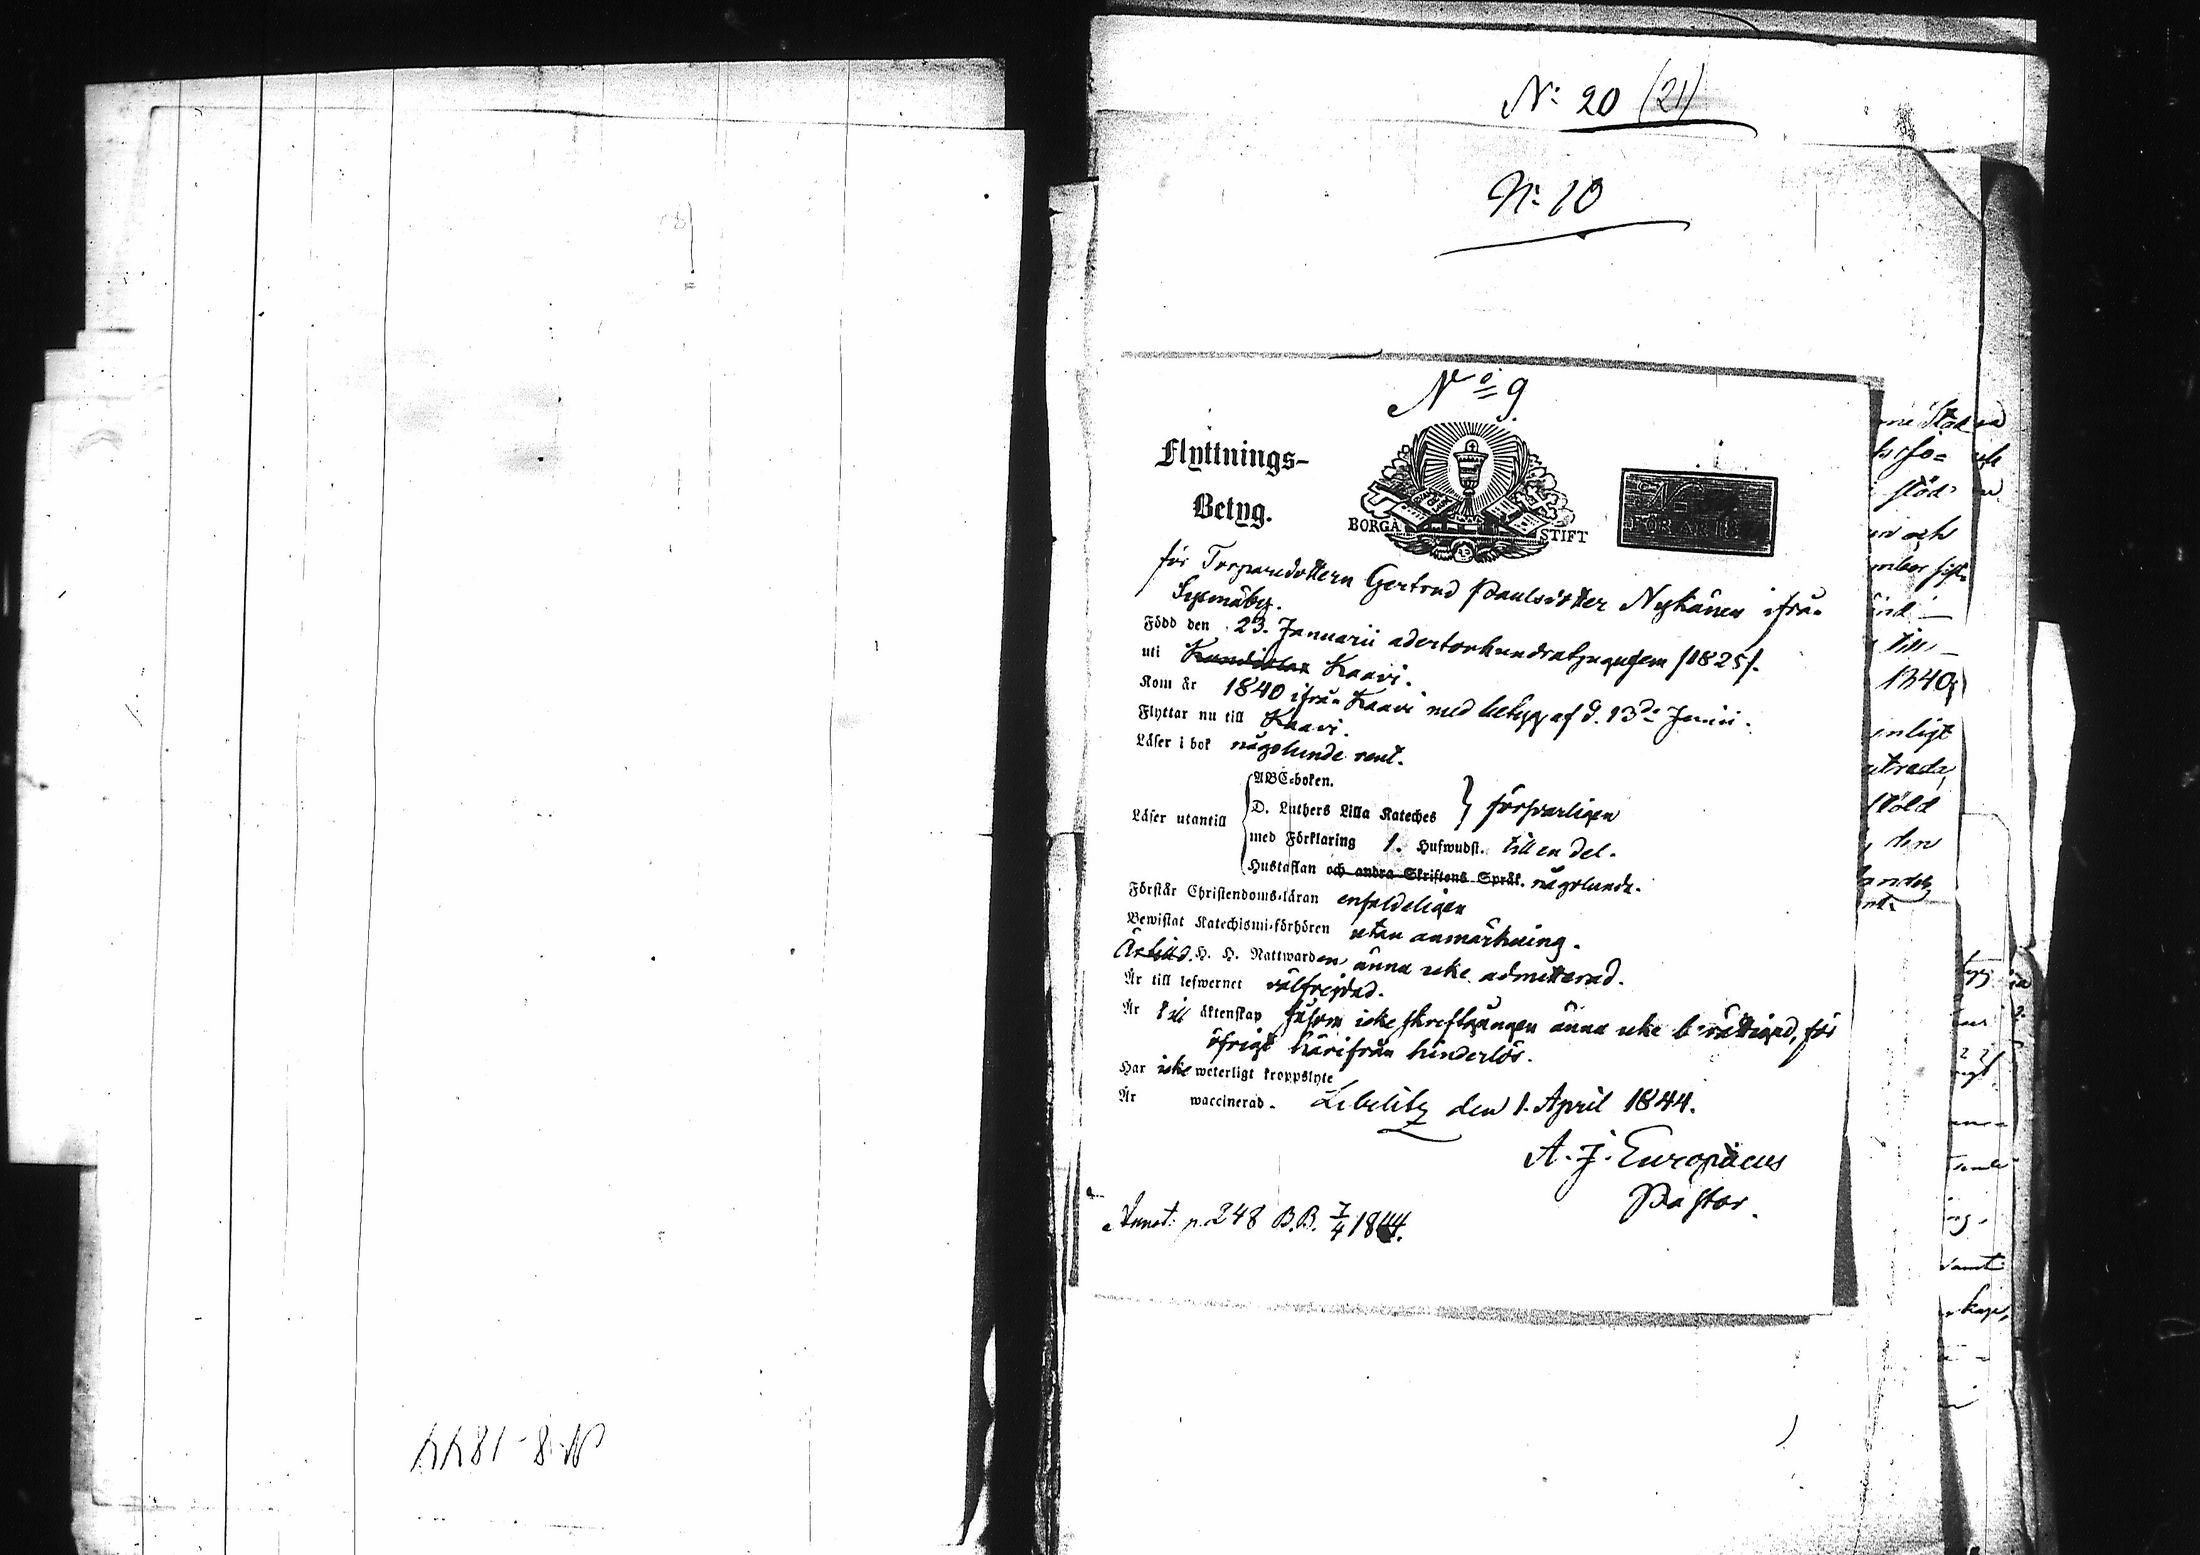 N: 8 - 1844
N: 20 (21)
N: 10
No 9
Flyttnings-
Betyg.
BORGÅ STIFT
FÖR ÅR 18
för Torparedottern Gertrud Paulsdotter Nykänen ifrån
Sysmäby.
Född den 23. Januarii adertonhundratjugufem /1825/.
uti Kaavi.
Kom år 1840 ifrån Kaavi med betyg af d. 13de Junii.
Flyttar nu till Kaavi.
Läser i bok någolunde rent.
Läser utantill
ABC-boken.
D. Luthers Lilla Kateches } försvarligen
med Förklaring 1. Hufwudst. till en del.
Hustaflan och andra Skriftens Språk. någolunda.
Förstår Christendoms-läran enfaldeligen
Bewistat Katechismi-förhören utan anmärkning.
Är till d. H. H. Nattwarden änna icke admitterad.
Är till lefwernet välfrejdad.
Är till äktenskap såsom icke skriftgången änna icke berättigad, för
öfrigt härifrån hinderlös.
Har icke weterligt kroppslyte
Är waccinerad. Libelitz den 1. April 1844.
A. J. Europäeus
Pastor.
Annot: p. 248 B.B. 7/4 1844.
1840
enligt
stöld
den